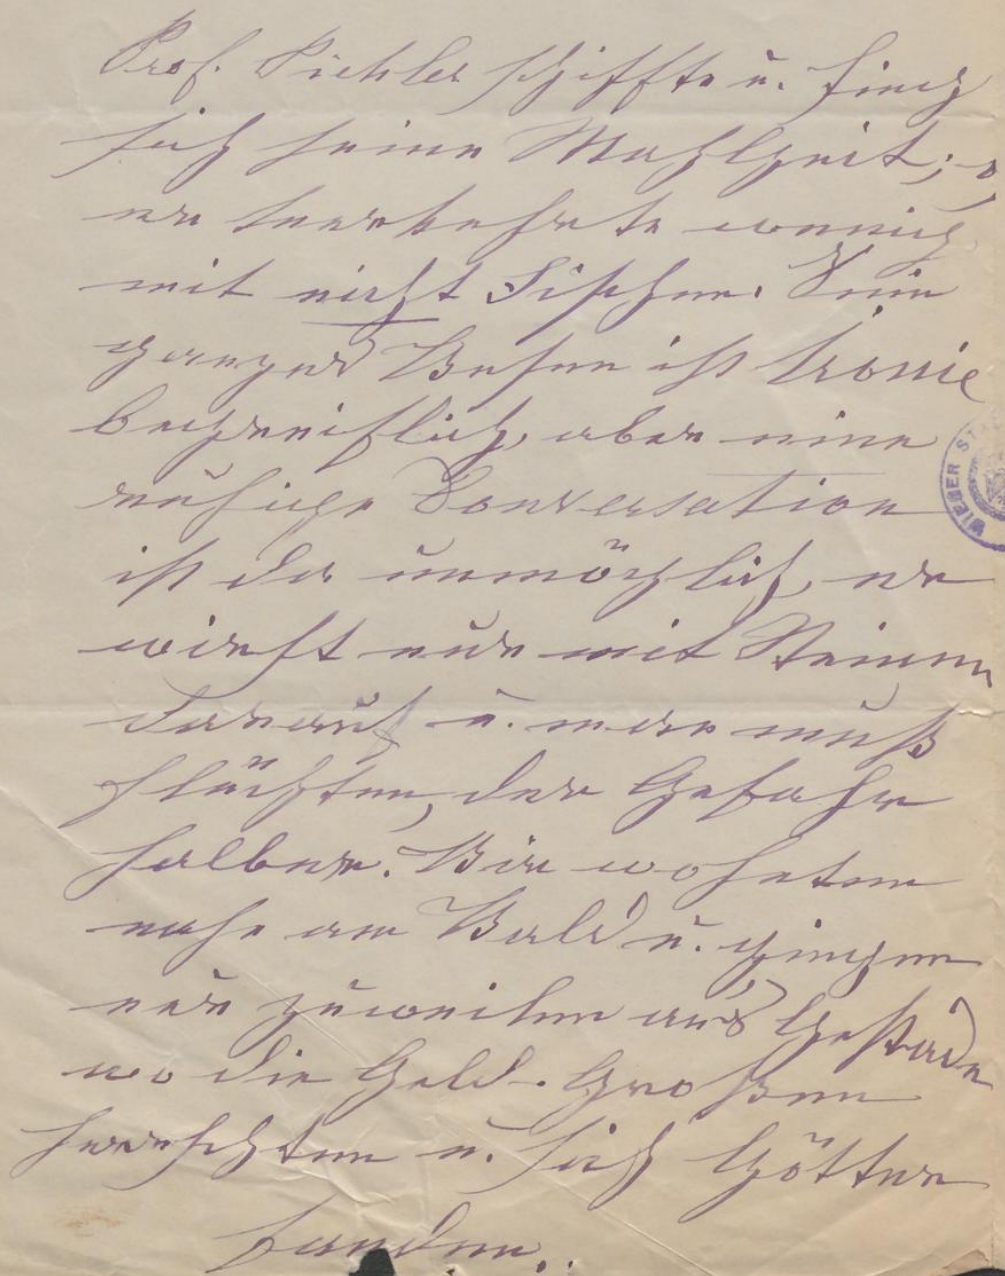 Prof. Pichler schiffte u. fing
sich seine Mahlzeit;
er verkehrte wenig
mit nicht Fischen. Sein
ganzes Wesen ist Ironie
begreiflich, aber eine
ruhige Conversation
ist da unmöglich, er
wirft nur mit Steinen
darauf u. man muß
flüchten, der Gefahr
halber. Wir wohnten
nahe am Wald u. gingen
nur zuweilen ans Gestade
wo die Geld-Großen
herrschten u. sich Götter
fanden..
WIENER STA